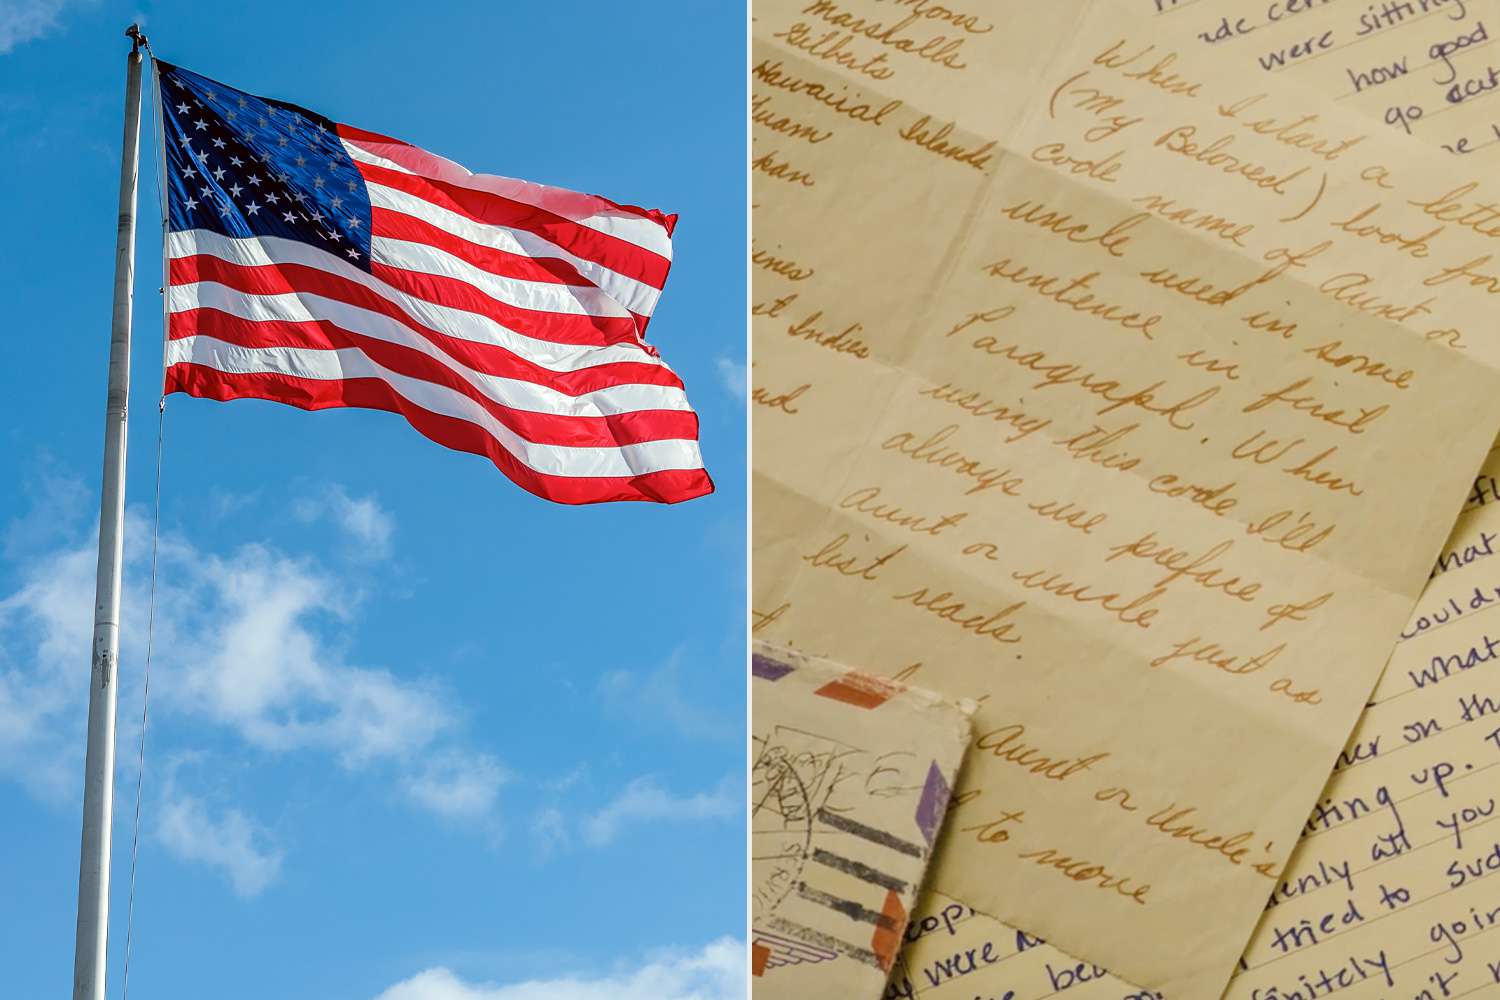 mons
marshalls
Gilberts
Hawaiial Islands
Guam
pan
ines
st Indies
When I start a letter
(My Beloved) look for
code name of Aunt or
uncle used in some
sentence in first
Paragraph. When
using this code I'll
always use preface of
Aunt or uncle just as
list reads.
Aunt or Uncle's
to move
were sitting
how good
go eat
what
couldn
what
on th
iting up.
enly all you
tried to sud
finitely goin
were
be